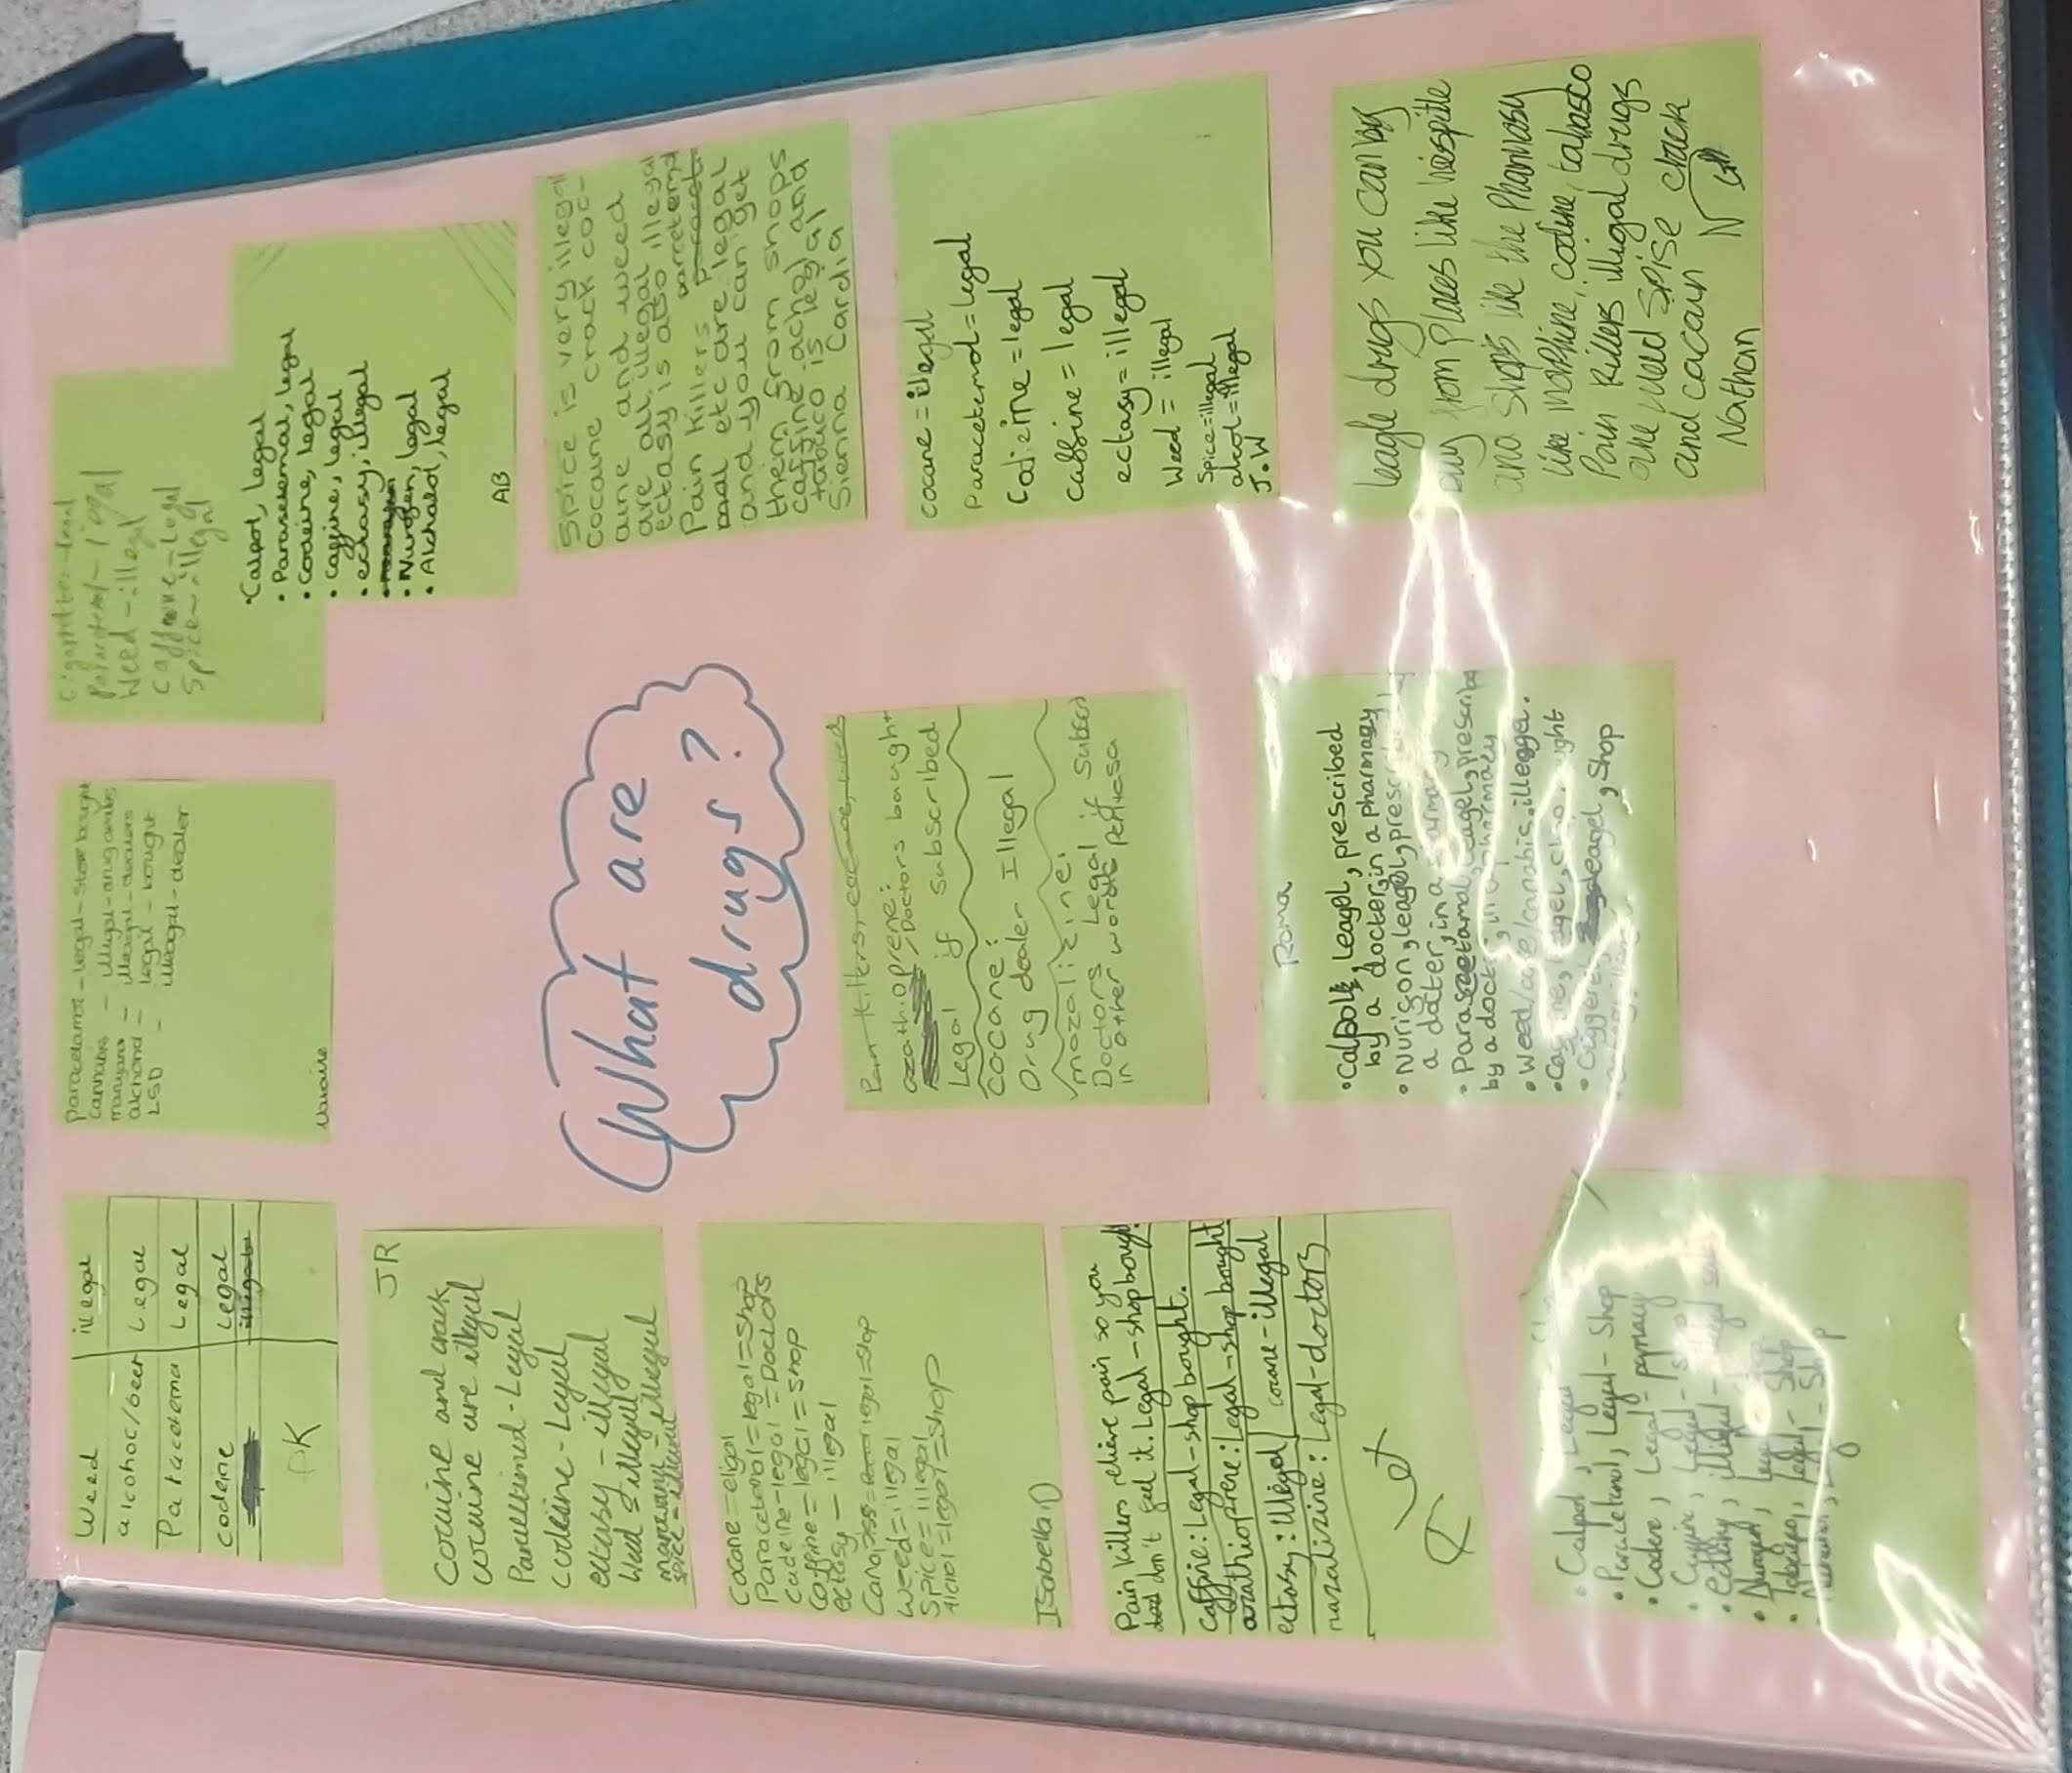 What are
drugs?
Weed illegal
alcohoc/beer Legal
Paracetemal Legal
codeine Legal
illegal
PK
Paracetamol - legal - store bought
Cannabis - illegal -
- illeagal - dealers
alchond - legal - bought
LSD - illeagal - dealer
Paracetemol - legal
Weed - illegal
Caffeine - Legal
Spice - illegal
• Calpol, legal
• Parasetemal, legal
• Codeine, legal
• Caffine, legal
• ectasy, illegal
• Nurofen, legal
• Alchahol, legal
AB
JR
Cocaine and crack
cocaine are illegal
Legal
Codeine - Legal
ectasy - illegal
Weed = illegal
spice - illegal
Spice is very illegal
cocaine crack coc-
aine and weed
are all illegal
ectasy is also illegal
Pain killers parretema
mal etc are legal
and you can get
them from shops
caffine achol and
tabaco is legal
Sienna Cardia
cocane = eligal
Paracetemol = legal = Shop
Codeine - legal = Doctors
Coffine = legal = shop
ectosy - illegal
legal = Shop
Weed = illegal
Spice = illegal
legal = Shop
Isabella D
Pain killers, cocane, weed
azathioprene:
Doctors bought
Legal if subscribed
cocane:
Drug dealer Illegal
mozalizine:
Doctors Legal if
in other words
cocane = illegal
Paracetemol = legal
Codine = legal
caffine = legal
ectasy = illegal
Weed = illegal
Spice = illegal
alcol = illegal
J.W
Pain killers relieve pain so you
don't feel it. Legal - shop bought
Caffine: Legal - shop bought.
azathioprene: Legal - shop bought
ectasy: Illegal cocane - illegal
mazalizine: Legal - doctors
Roma
• Calpol, leagel, prescribed
by a docter in a pharmacy
• Nurigon, leagel,
a docter, in a
• Parasetamol, leagel, prescribe
by a docter, in a pharmacy
• Weed/ illeegal.
leagel, Shop
leagle drugs you can by
buy from places like hospitle
and shops like the Pharmasy
like morphine, codine, tabasco
Pain killers illigal drugs
are weed spise crack
and cacain
Nathan
• Calpol, Legal
• Paracetamol, Legal - Shop
• Codeine, Legal
• Caffine, Legal
• ectasy, illegal
Legal - Shop
- Shop